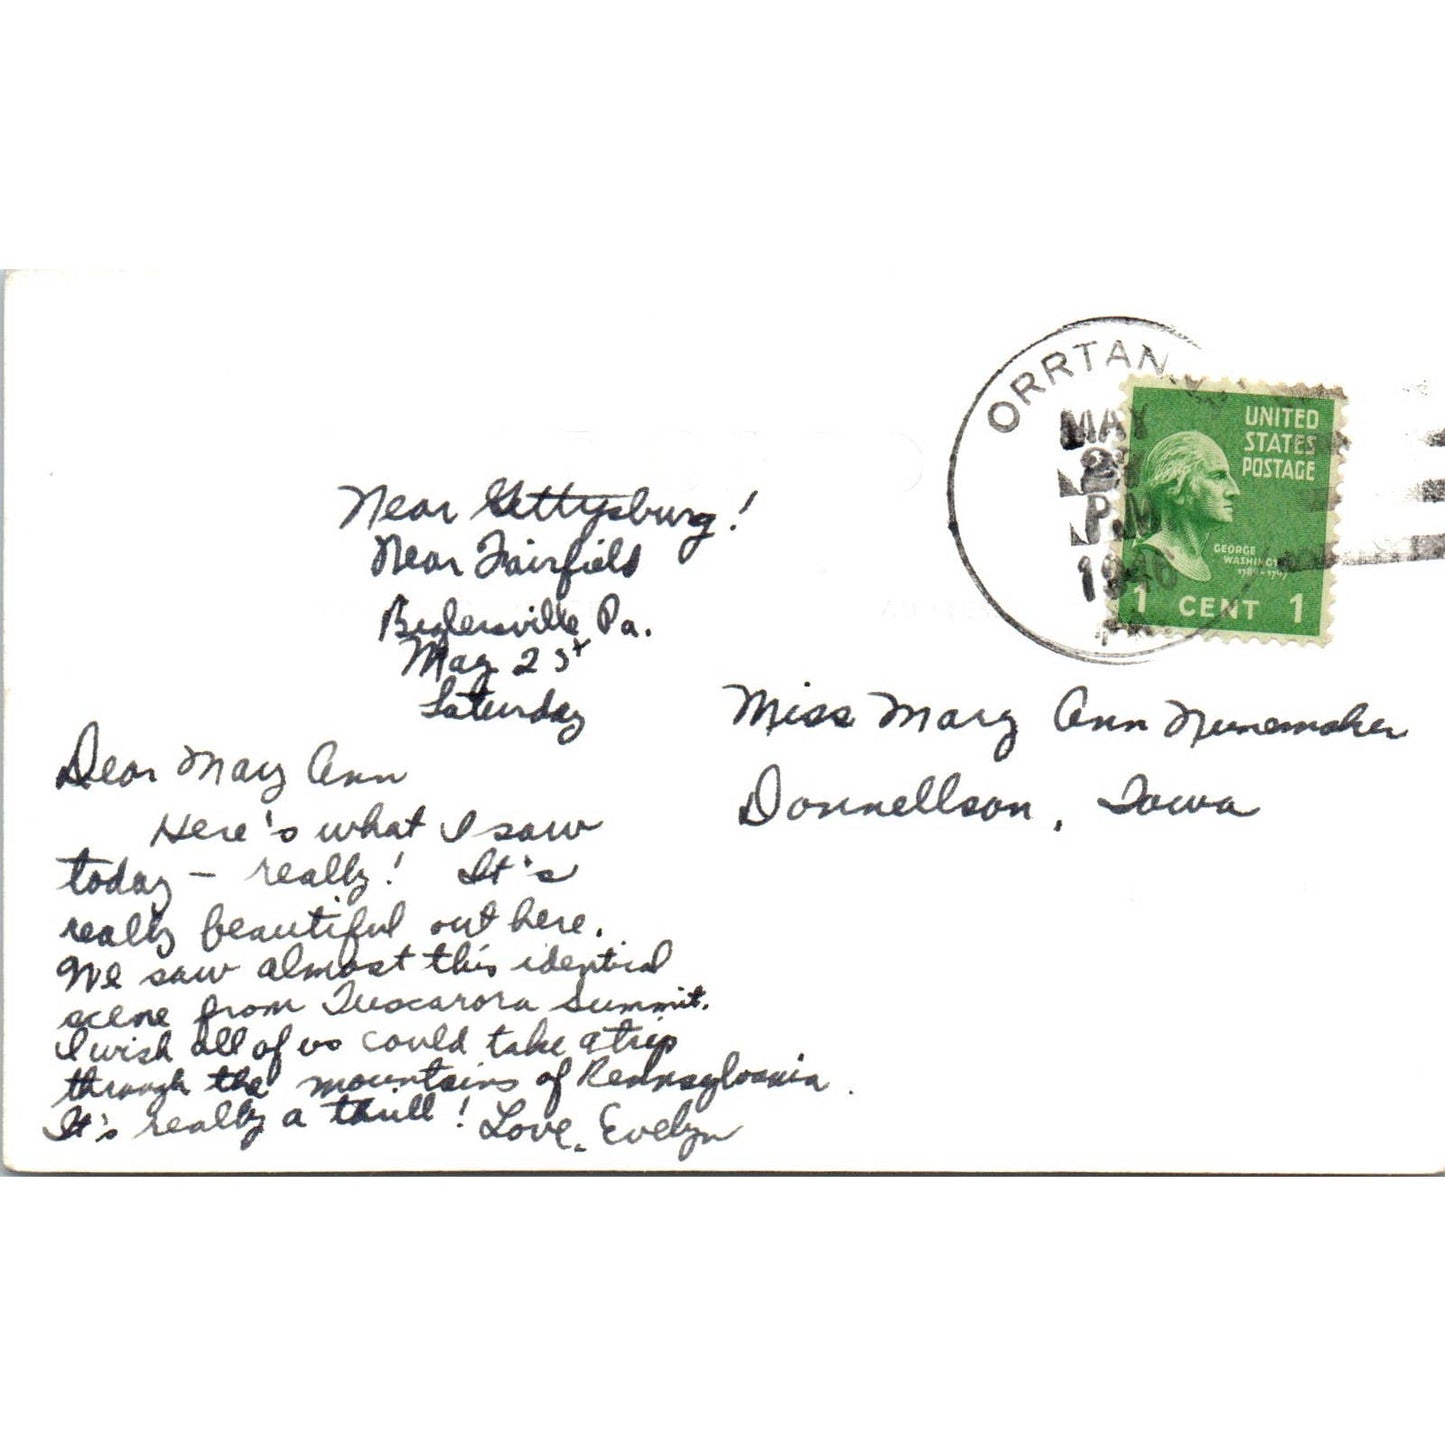 ORRTAN
MAY
27
P.M
1946
UNITED
STATES
POSTAGE
GEORGE
WASHINGTON
1789-1797
1 CENT 1
Near Gettysburg!
Near Fairfield
Biglersville, Pa.
May 25
Saturday
Miss Mary Ann Nunemaker
Donnellson, Iowa
Dear Mary Ann
Here's what I saw
today - really! It's
really beautiful out here.
We saw almost this identical
scene from Tuscarora Summit.
I wish all of us could take a trip
through the mountains of Pennsylvania.
It's really a thrill! Love, Evelyn